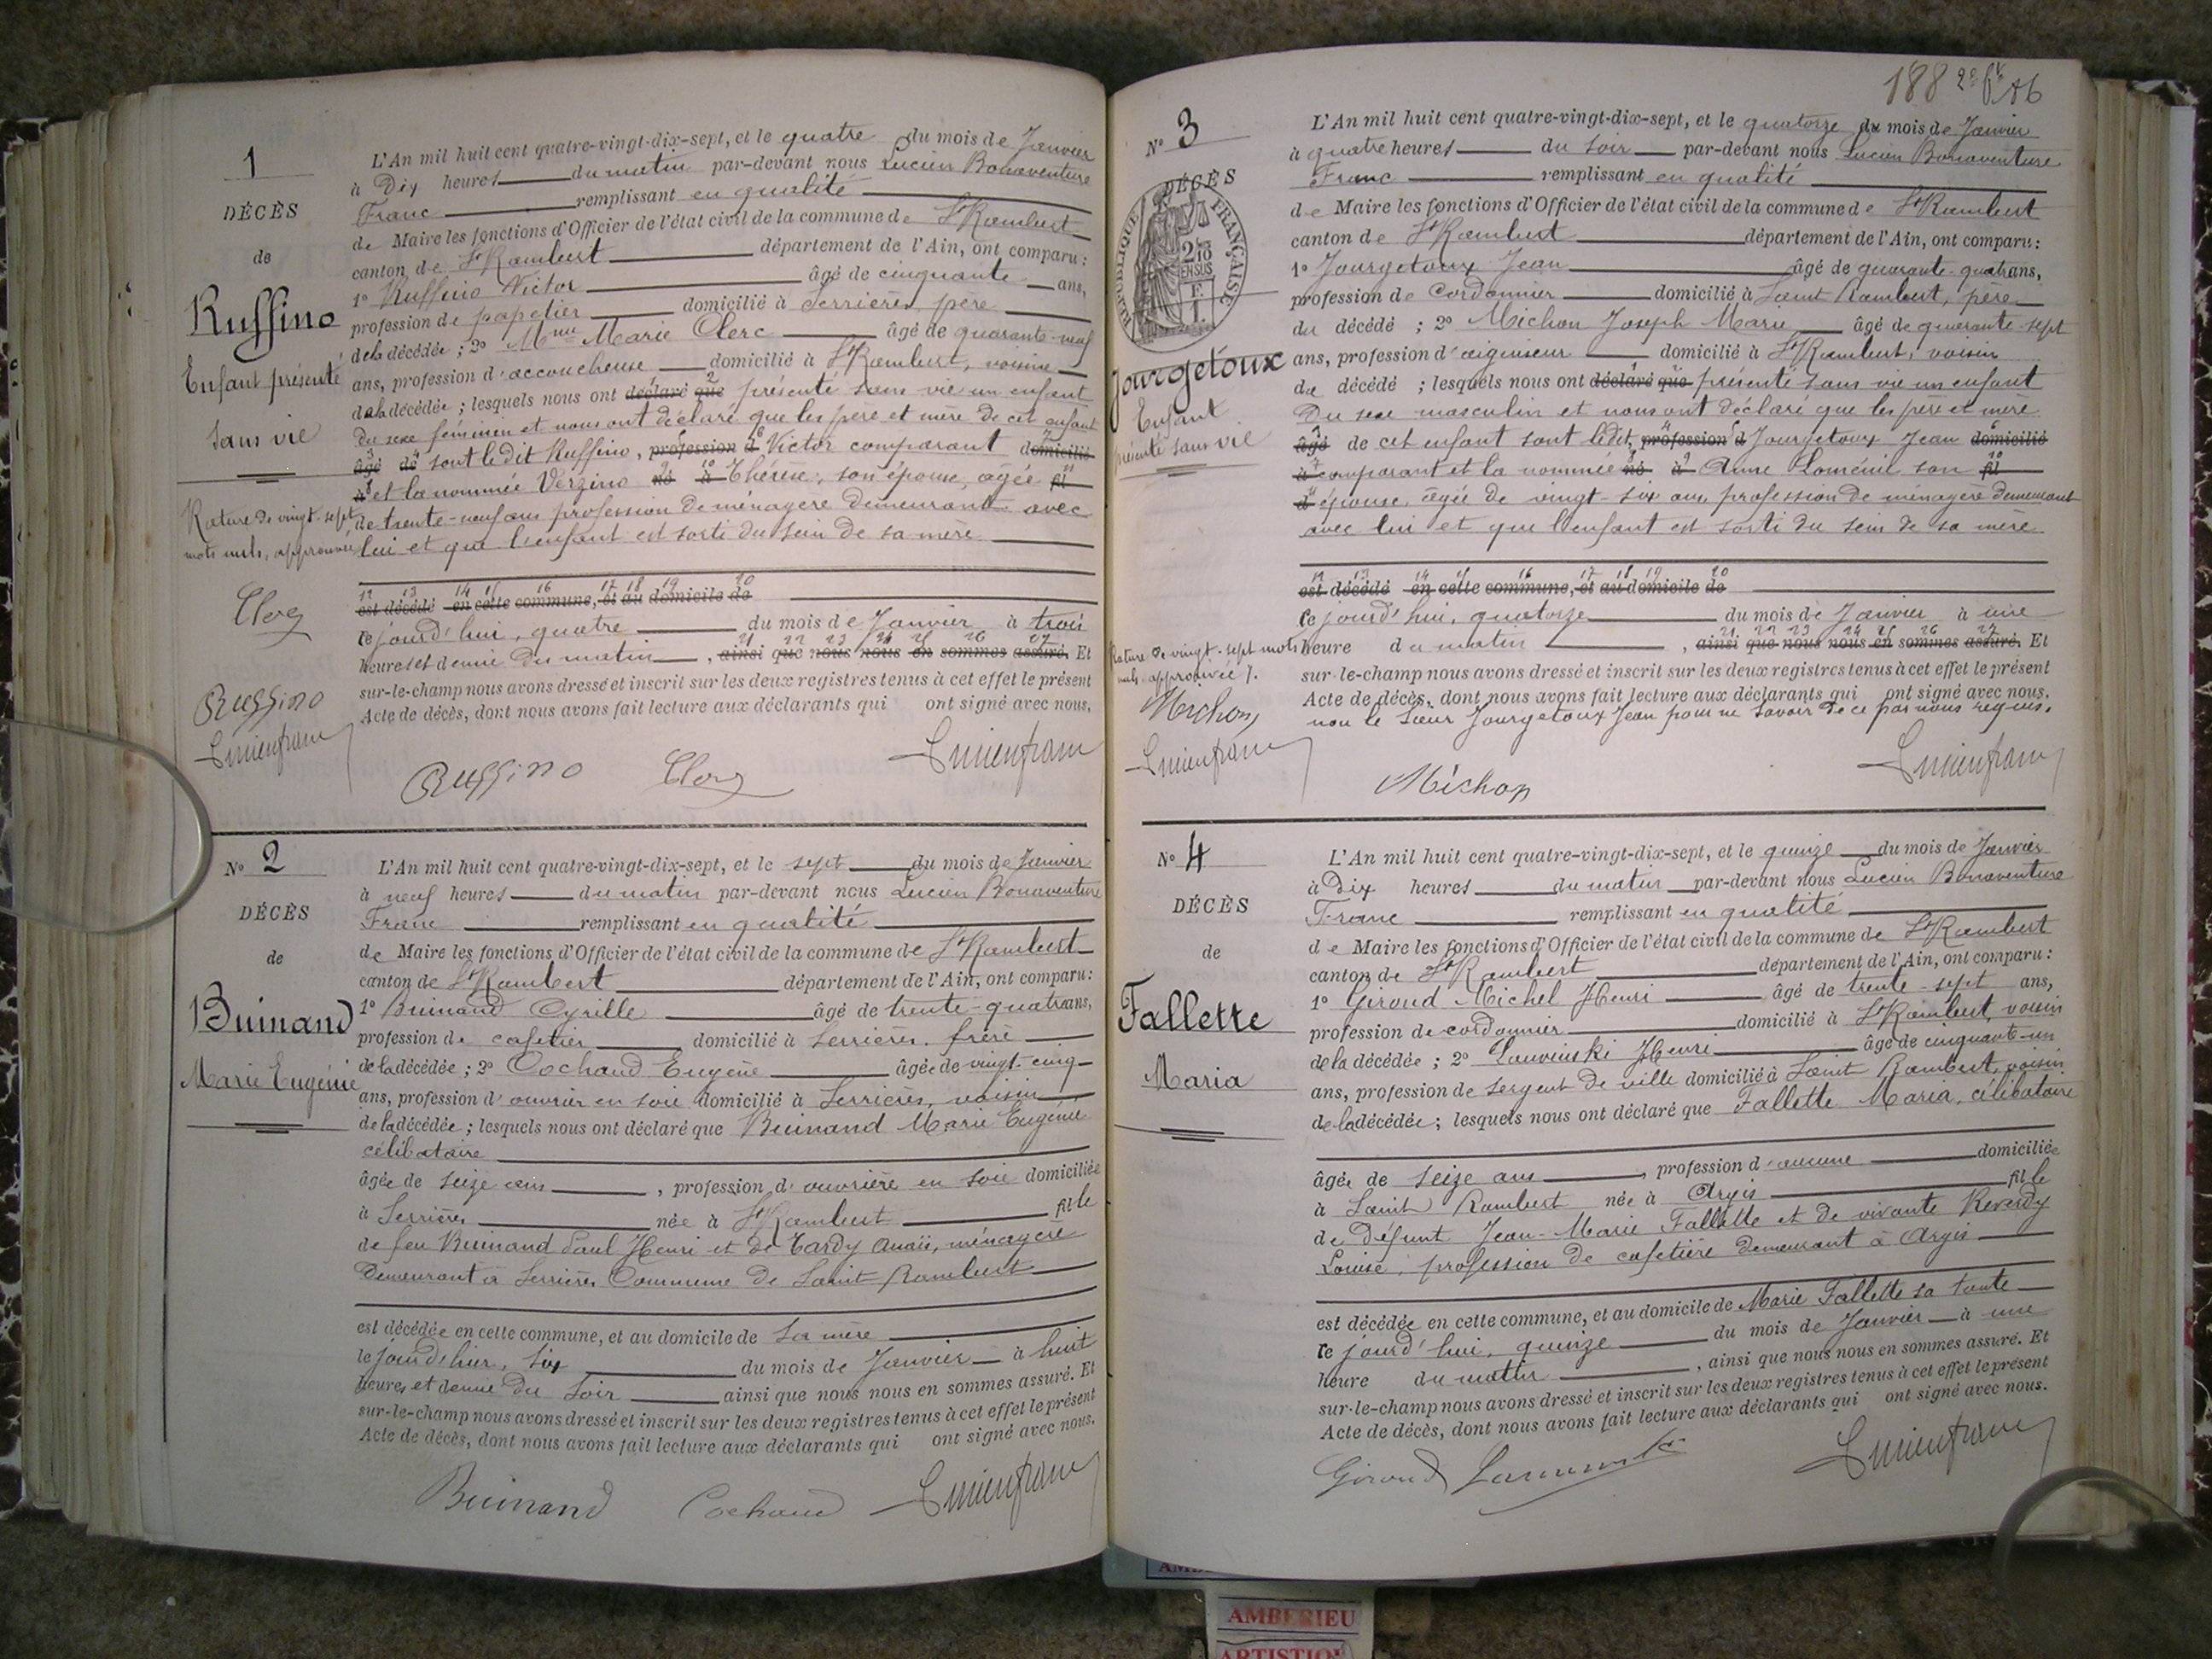 1
DÉCÈS
de
Ruffino
Enfant présenté
sans vie
Rature de vingt-sept
mots nuls, approuvée
Clerc
Ruffino
L'An mil huit cent quatre-vingt-dix-sept, et le quatre du mois de Janvier
à Dix heures du matin par-devant nous Lucien Bonaventure
Franc remplissant en qualité
de Maire les fonctions d'Officier de l'état civil de la commune de St Rambert
canton de St Rambert département de l'Ain, ont comparu:
1o Ruffino Victor âgé de cinquante ans,
profession de papetier domicilié à Serrières, père
de la décédée; 2o Mme Marie Clerc âgé de quarante-neuf
ans, profession d'accoucheuse domicilié à St Rambert, voisine
de la décédée; lesquels nous ont déclaré que présenté sans vie un enfant
du sexe féminin et nous ont déclaré que les père et mère de cet enfant
âgé de sont le dit Ruffino, profession d Victor comparant domicilié
à et la nommée Verzino né à Thérèse, son épouse, agée fil
de trente-neuf ans profession de ménagère demeurant avec
lui et que l'enfant est sorti du sein de sa mère
12 13 14 15 16 17 18 19 20
est décédé en cette commune, et au domicile de
ce jourd'hui, quatre du mois de Janvier à trois
21 22 23 24 25 26 27
heures et demie du matin, ainsi que nous nous en sommes assuré. Et
sur-le-champ nous avons dressé et inscrit sur les deux registres tenus à cet effet le présent
Acte de décès, dont nous avons fait lecture aux déclarants qui ont signé avec nous,
Ruffino Clerc Lucien franc
No 2
DÉCÈS
de
Buinand
Marie Eugénie
L'An mil huit cent quatre-vingt-dix-sept, et le sept du mois de Janvier
à neuf heures du matin par-devant nous Lucien Bonaventure
Franc remplissant en qualité
de Maire les fonctions d'Officier de l'état civil de la commune de St Rambert
canton de St Rambert département de l'Ain, ont comparu:
1o Buinand Cyrille âgé de trente-quatre ans,
profession de cafetier domicilié à Serrières, frère
de la décédée; 2o Cochand Eugène âgée de vingt-cinq
ans, profession d'ouvrier en soie domicilié à Serrières, voisin
de la décédée; lesquels nous ont déclaré que Buinand Marie Eugénie
célibataire
âgée de seize ans, profession d'ouvrière en soie domiciliée
à Serrières née à St Rambert fille
de feu Buinand Paul Henri et de Tardy Anaïs, ménagère
demeurant à Serrières Commune de Saint Rambert
est décédée en cette commune, et au domicile de sa mère
le jour d'hier, six du mois de Janvier à huit
heures et demie du soir ainsi que nous nous en sommes assuré. Et
sur-le-champ nous avons dressé et inscrit sur les deux registres tenus à cet effet le présent
Acte de décès, dont nous avons fait lecture aux déclarants qui ont signé avec nous.
Buinand Cochand Lucien franc
188
No 3
DÉCÈS
RÉPUBLIQUE FRANÇAISE
Jourgetoux
Enfant
présenté sans vie
Rature de vingt-sept mots
nuls approuvée
Michon
L'An mil huit cent quatre-vingt-dix-sept, et le quatorze du mois de Janvier
à quatre heures du soir par-devant nous Lucien Bonaventure
Franc remplissant en qualité
de Maire les fonctions d'Officier de l'état civil de la commune de St Rambert
canton de St Rambert département de l'Ain, ont comparu:
1o Jourgetoux Jean âgé de quarante-quatre ans,
profession de cordonnier domicilié à Saint Rambert, père
du décédé; 2o Michon Joseph Marie âgé de quarante-sept
ans, profession d'aiguiseur domicilié à St Rambert, voisin
du décédé; lesquels nous ont déclaré que présenté sans vie un enfant
du sexe masculin et nous ont déclaré que les père et mère
âgé de cet enfant sont le dit, profession d Jourgetoux Jean domicilié
à comparant et la nommée né à Anne Loménil son fil
d épouse, agée de vingt-six ans, profession de ménagère demeurant
avec lui et que l'enfant est sorti du sein de sa mère
12 13 14 15 16 17 18 19 20
est décédé en cette commune, et au domicile de
ce jourd'hui, quatorze du mois de Janvier à une
21 22 23 24 25 26 27
heure du matin, ainsi que nous nous en sommes assuré. Et
sur-le-champ nous avons dressé et inscrit sur les deux registres tenus à cet effet le présent
Acte de décès, dont nous avons fait lecture aux déclarants qui ont signé avec nous,
non le sieur Jourgetoux Jean pour ne savoir de ce par nous requis.
Michon Lucien franc
No 4
DÉCÈS
de
Fallette
Maria
L'An mil huit cent quatre-vingt-dix-sept, et le quinze du mois de Janvier
à Dix heures du matin par-devant nous Lucien Bonaventure
Franc remplissant en qualité
de Maire les fonctions d'Officier de l'état civil de la commune de St Rambert
canton de St Rambert département de l'Ain, ont comparu:
1o Giroud Michel Henri âgé de trente-sept ans,
profession de cordonnier domicilié à St Rambert, voisin
de la décédée; 2o Henri âgé de cinquante-un
ans, profession de sergent de ville domicilié à Saint Rambert, voisin
de la décédée; lesquels nous ont déclaré que Fallette Maria, célibataire
âgée de seize ans, profession d'aucune domiciliée
à Saint Rambert née à Argis fille
de défunt Jean-Marie Fallette et de vivante Reverdy
Louise, profession de cafetière demeurant à Argis
est décédée en cette commune, et au domicile de Marie Fallette sa tante
ce jourd'hui, quinze du mois de Janvier à une
heure du matin, ainsi que nous nous en sommes assuré. Et
sur-le-champ nous avons dressé et inscrit sur les deux registres tenus à cet effet le présent
Acte de décès, dont nous avons fait lecture aux déclarants qui ont signé avec nous.
Giroud Lucien franc
AMBERIEU